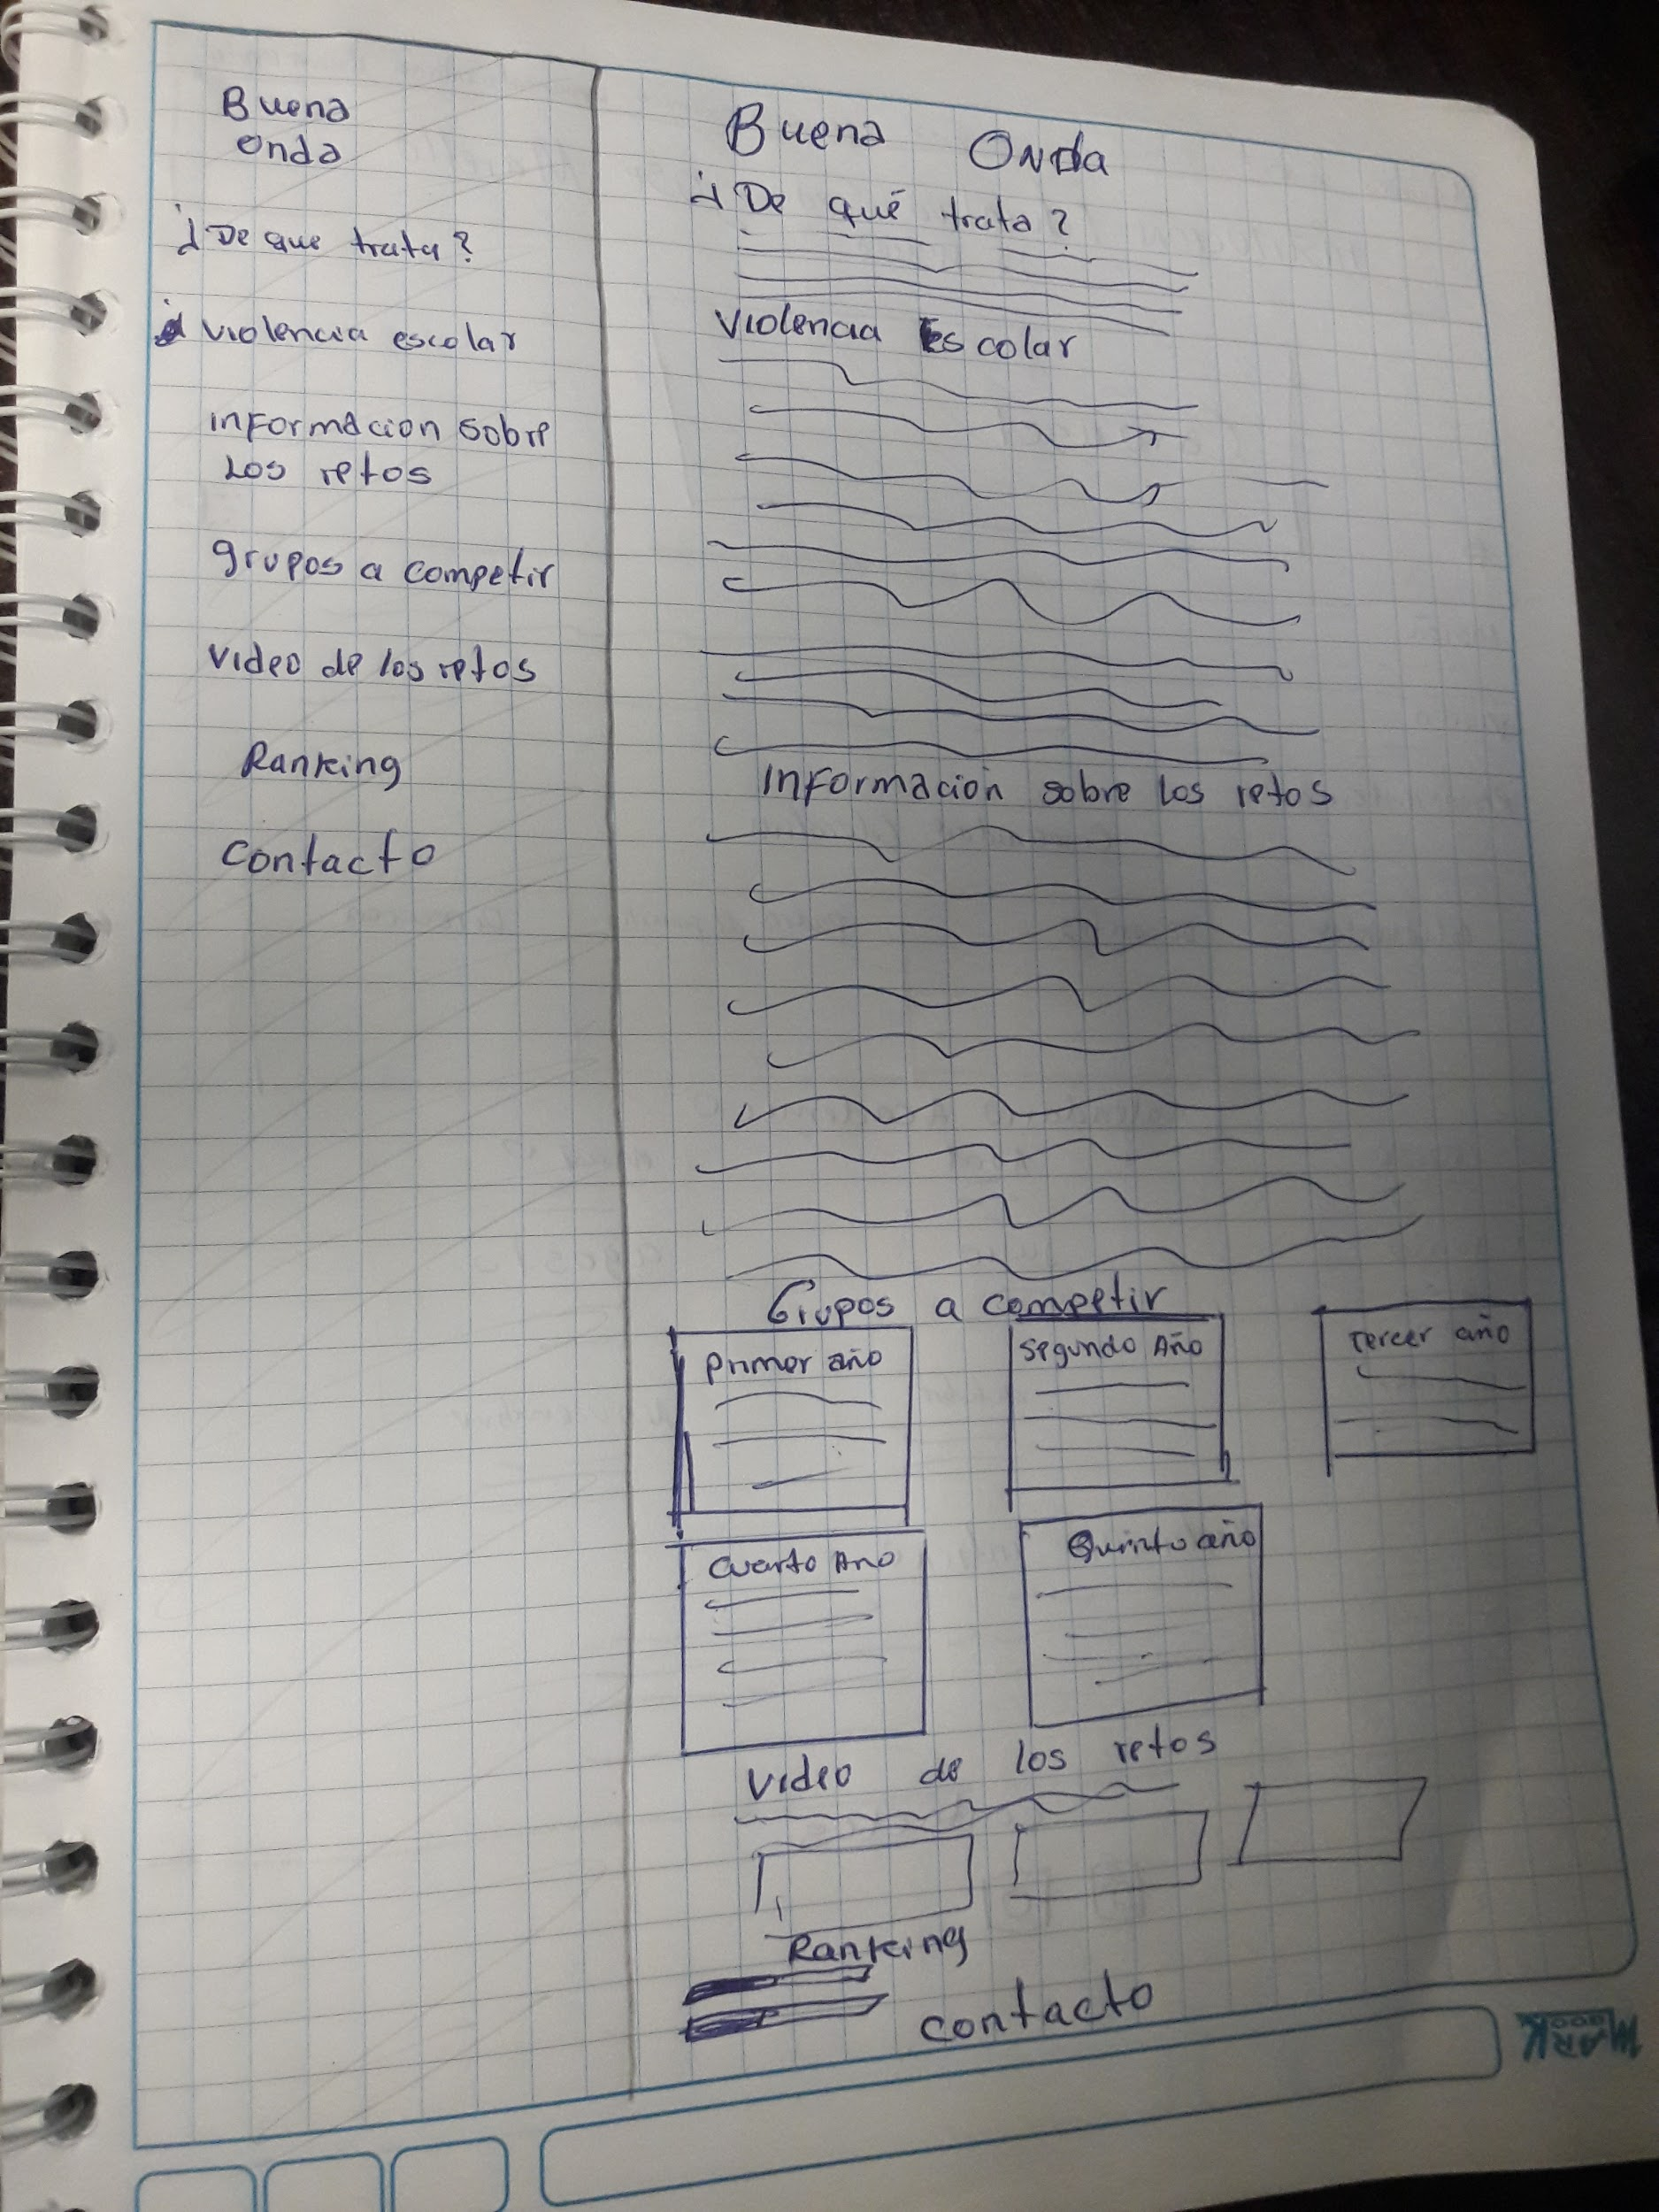 Buena
Onda
¿De que trata?
violencia escolar
informacion sobre
Los retos
grupos a competir
video de los retos
Ranking
contacto
Buena Onda
¿De qué trata?
violencia Escolar
informacion sobre los retos
Grupos a competir
primer año
segundo Año
tercer año
cuarto Ano
Quinto año
video de los retos
Ranking
contacto
MARK